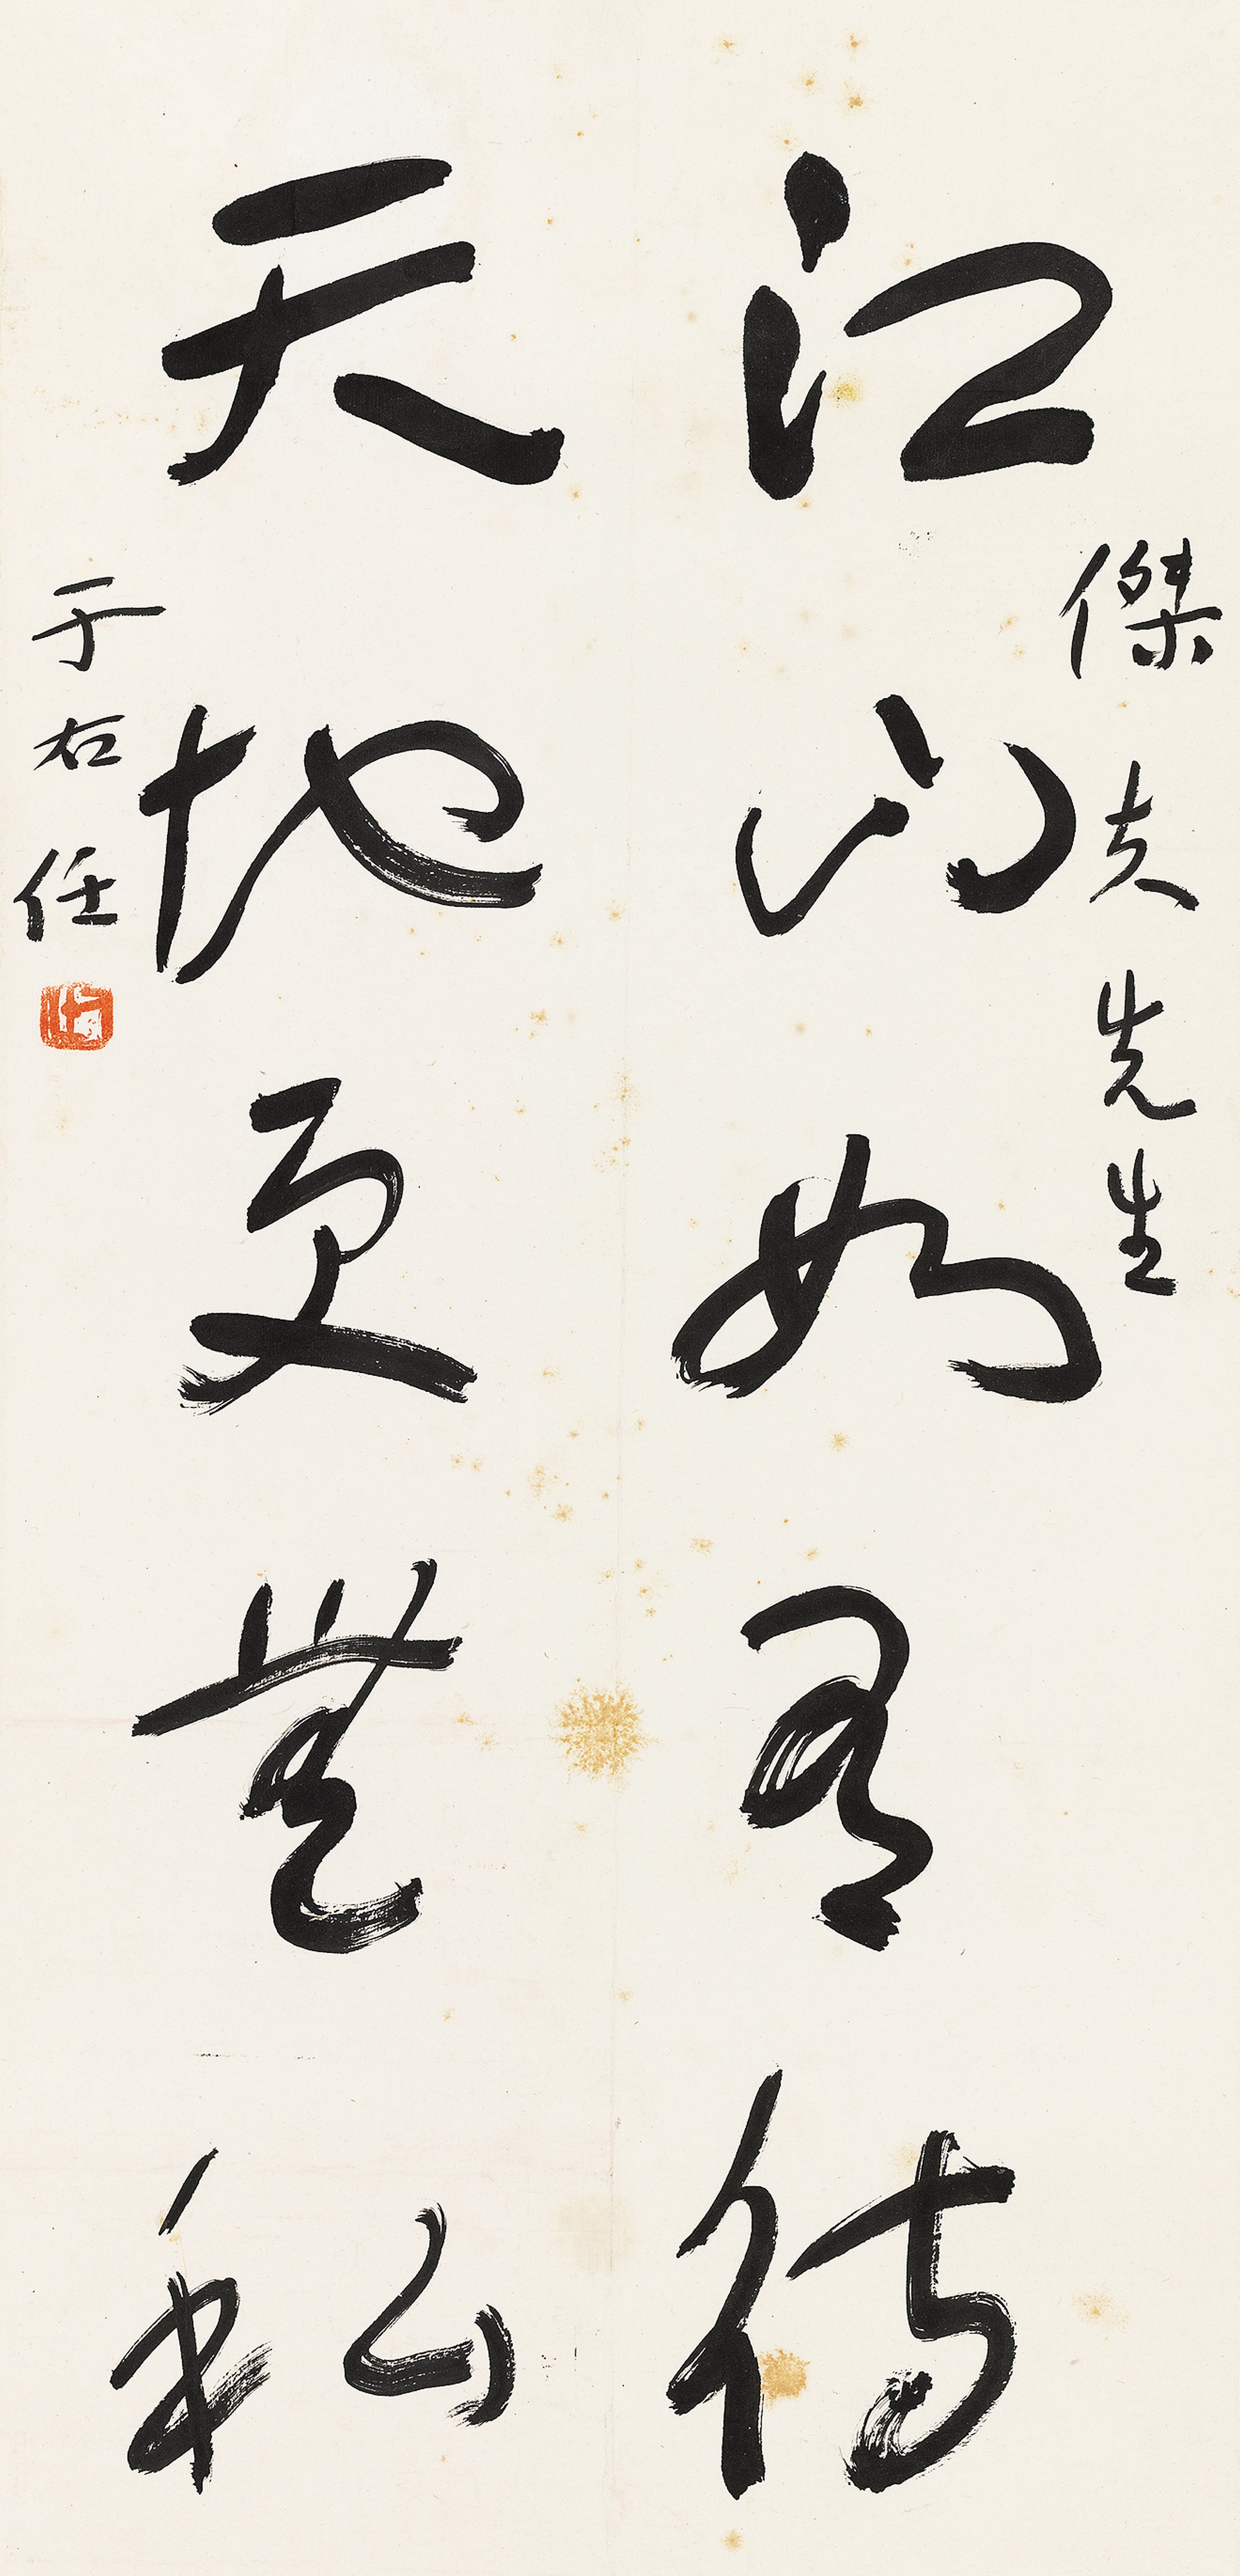 江山如有待
傑夫先生
天地更無私
于右任